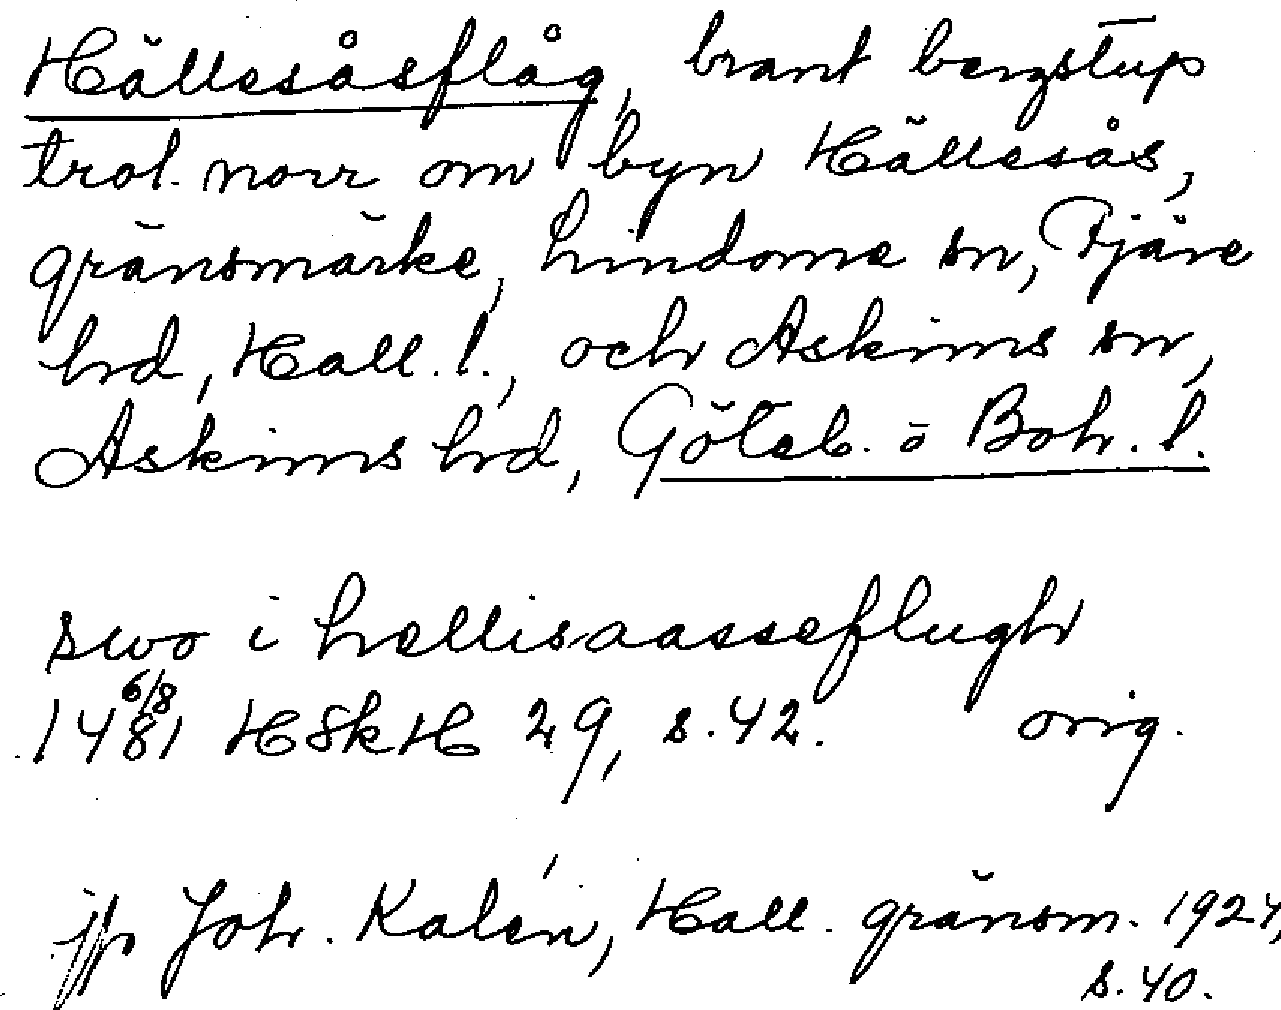 Hällesåsflåg, brant bergstup
trol. norr om byn Hällesås,
gränsmärke, Lindome sn, Fjäre
hrd, Hall. l., och Askims sn,
Askims hrd, Göteb. o Boh. l.
swo i hellisaasseflugh
1481 6/8 HSkH 29, s. 42. orig.
jfr Joh. Kalén, Hall. gränsm. 1924,
s. 40.